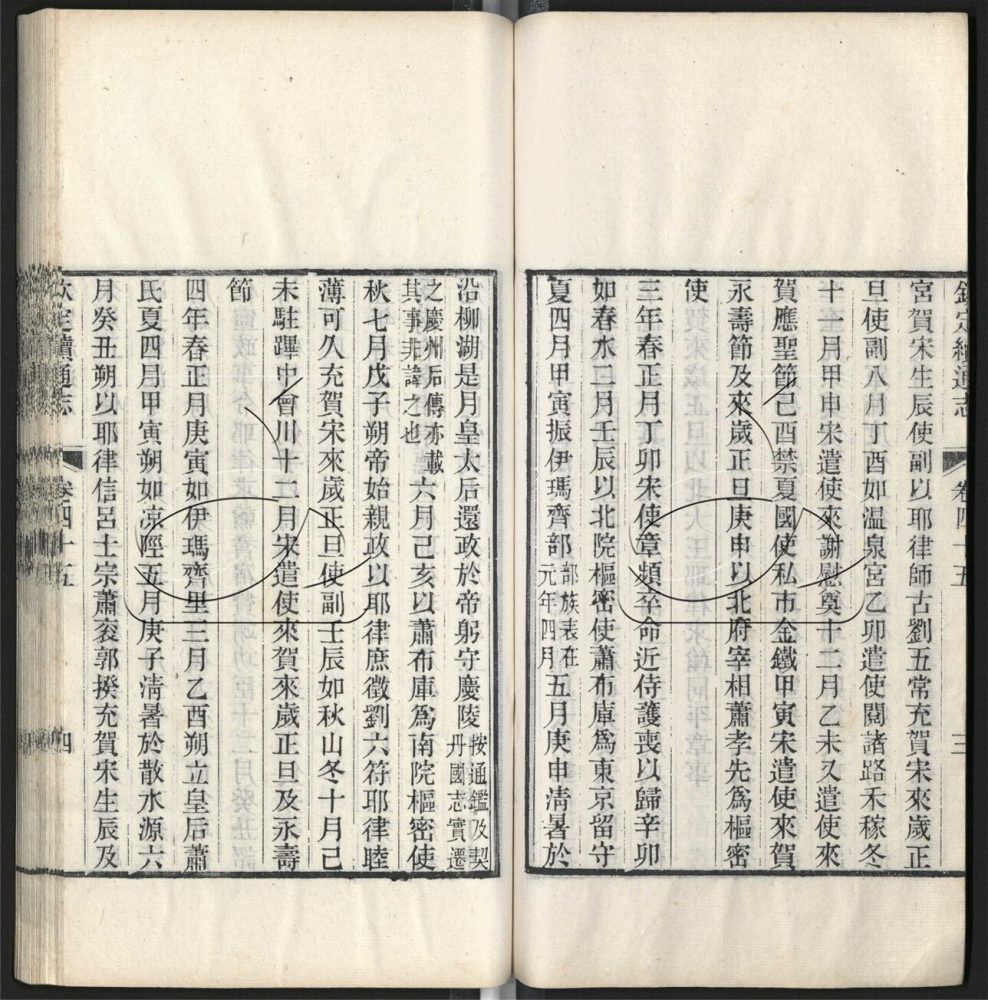 欽定續通志 卷四十五 三
宮賀宋生辰使副以耶律師古劉五常充賀宋來歲正
旦使副八月丁酉如温泉宮乙卯遣使閱諸路禾稼冬
十一月甲申宋遣使來謝慰奠十二月乙未又遣使來
賀應聖節己酉禁夏國使私市金鐵甲寅宋遣使來賀
永壽節及來歲正旦庚申以北府宰相蕭孝先爲樞密
使
三年春正月丁卯宋使章頻卒命近侍護喪以歸辛卯
如春水三月壬辰以北院樞密使蕭布庫爲東京留守
夏四月甲寅振伊瑪齊部部族表在元年四月五月庚申淸暑於
沿柳湖是月皇太后還政於帝躬守慶陵按通鑑及契丹國志實遷
之慶州后傳亦載其事非諱之也六月己亥以蕭布庫爲南院樞密使
秋七月戊子朔帝始親政以耶律庶徵劉六符耶律睦
薄可久充賀宋來歲正旦使副壬辰如秋山冬十月己
未駐蹕中會川十二月宋遣使來賀來歲正旦及永壽
節
四年春正月庚寅如伊瑪齊里三月乙酉朔立皇后蕭
氏夏四月甲寅朔如凉陘五月庚子淸暑於散水源六
月癸丑朔以耶律信呂士宗蕭衮郭揆充賀宋生辰及
欽定續通志 卷四十五 四